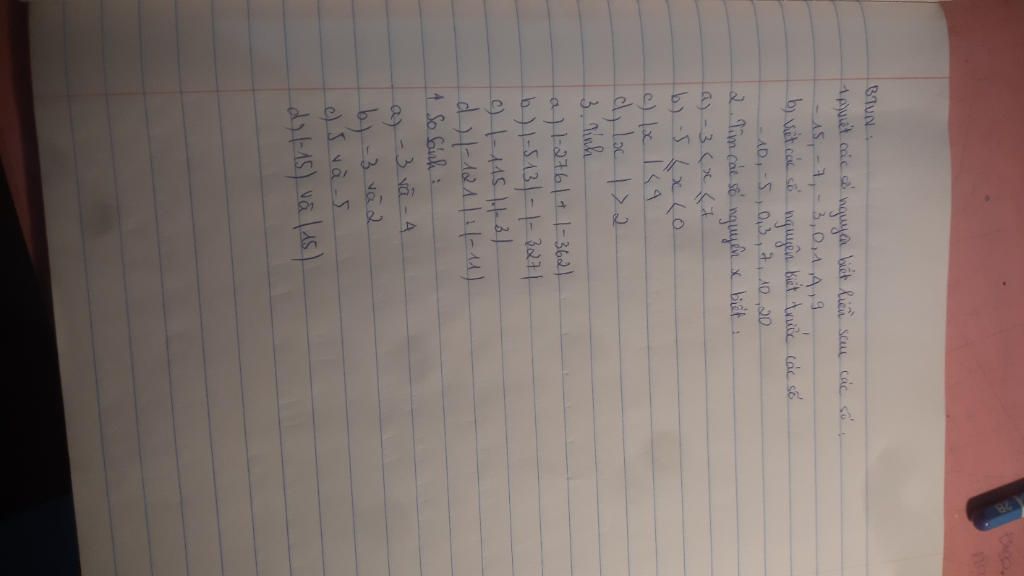 BTVN:
1 a, viết các số nguyên biết liền sau các số,
-15, -7, -3, 0, 1, 4, 9
b) viết các số nguyên biết trước các số
-10, -5, 0, 3, 7, 10, 20
2. Tìm các số nguyên x biết:
a) -3 < x < 7
b) -5 ≤ x < 0
c) |x| < 4
d) |x| > 2
3. Tính
a) |-276| + |-362|
b) |-513| - |-327|
c) |-115|.|-3|
d) |-121| : |-11|
4 So sánh:
a) -3 và -4
b) -3 và 2
c) 5 và -5
d) |-15| và |15|
2B